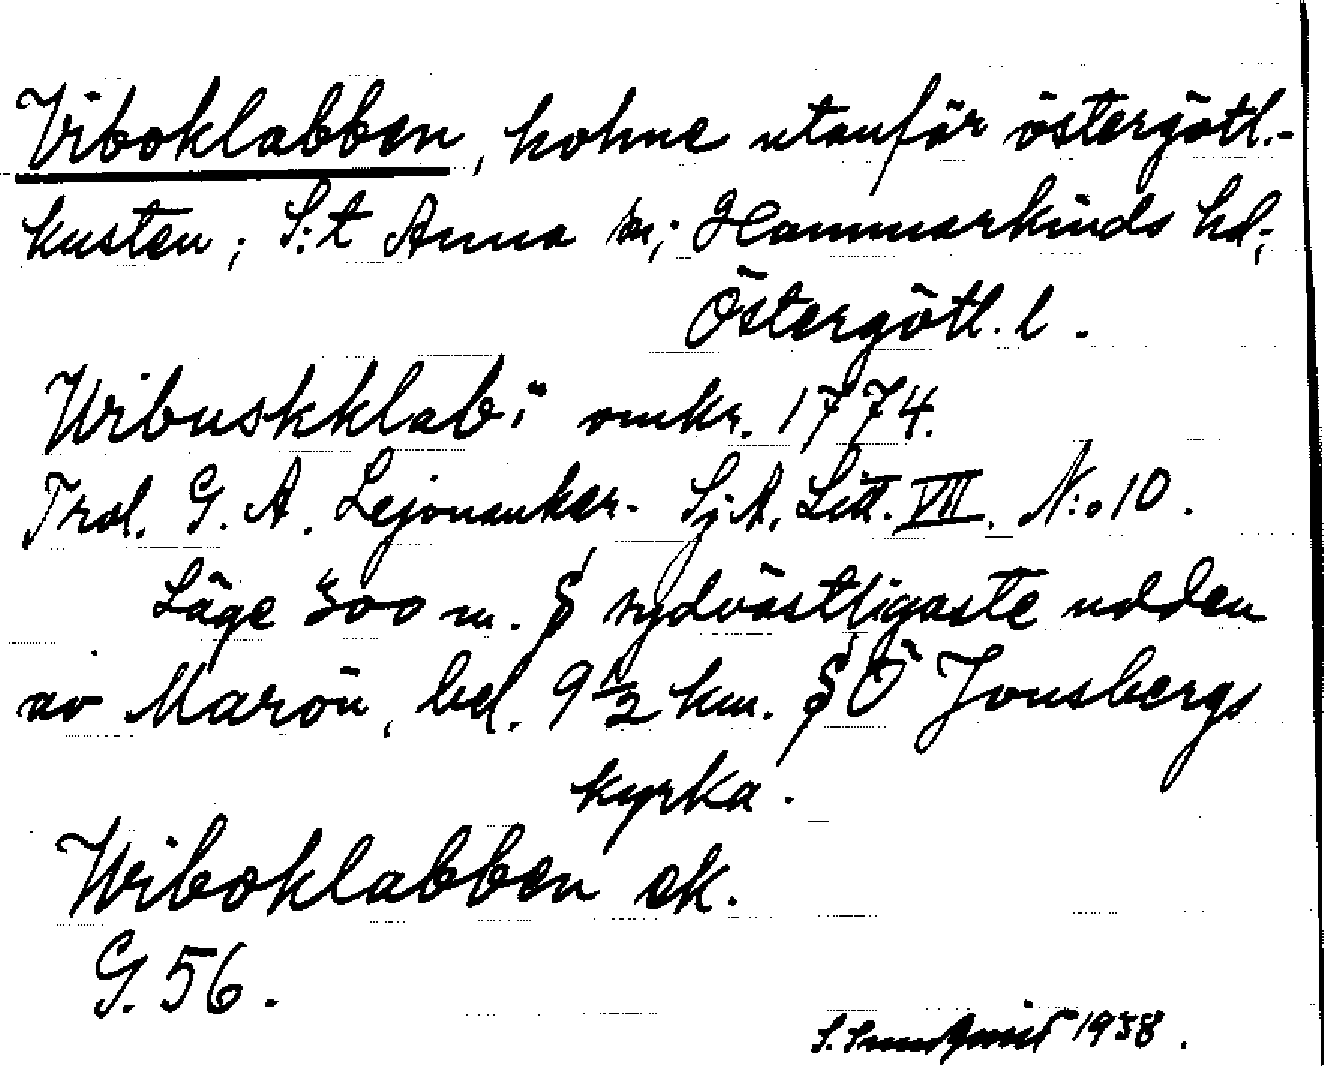 Viboklabben, holme utanför östergötl.-
kusten; S:t Anna sn; Hammarkinds hd;
Östergötl. l.
Wibuskklabi omkr. 1774.
Trol. G. A. Lejonanker. Sj.A. Litt. VIII. N:o 10.
Läge 300 m. S sydvästligaste udden
av Marön, bel. 9 1/2 km. SÖ Jonsbergs
kyrka.
Wiboklabben ek.
G. 56.
S. Sundqvist 1938.